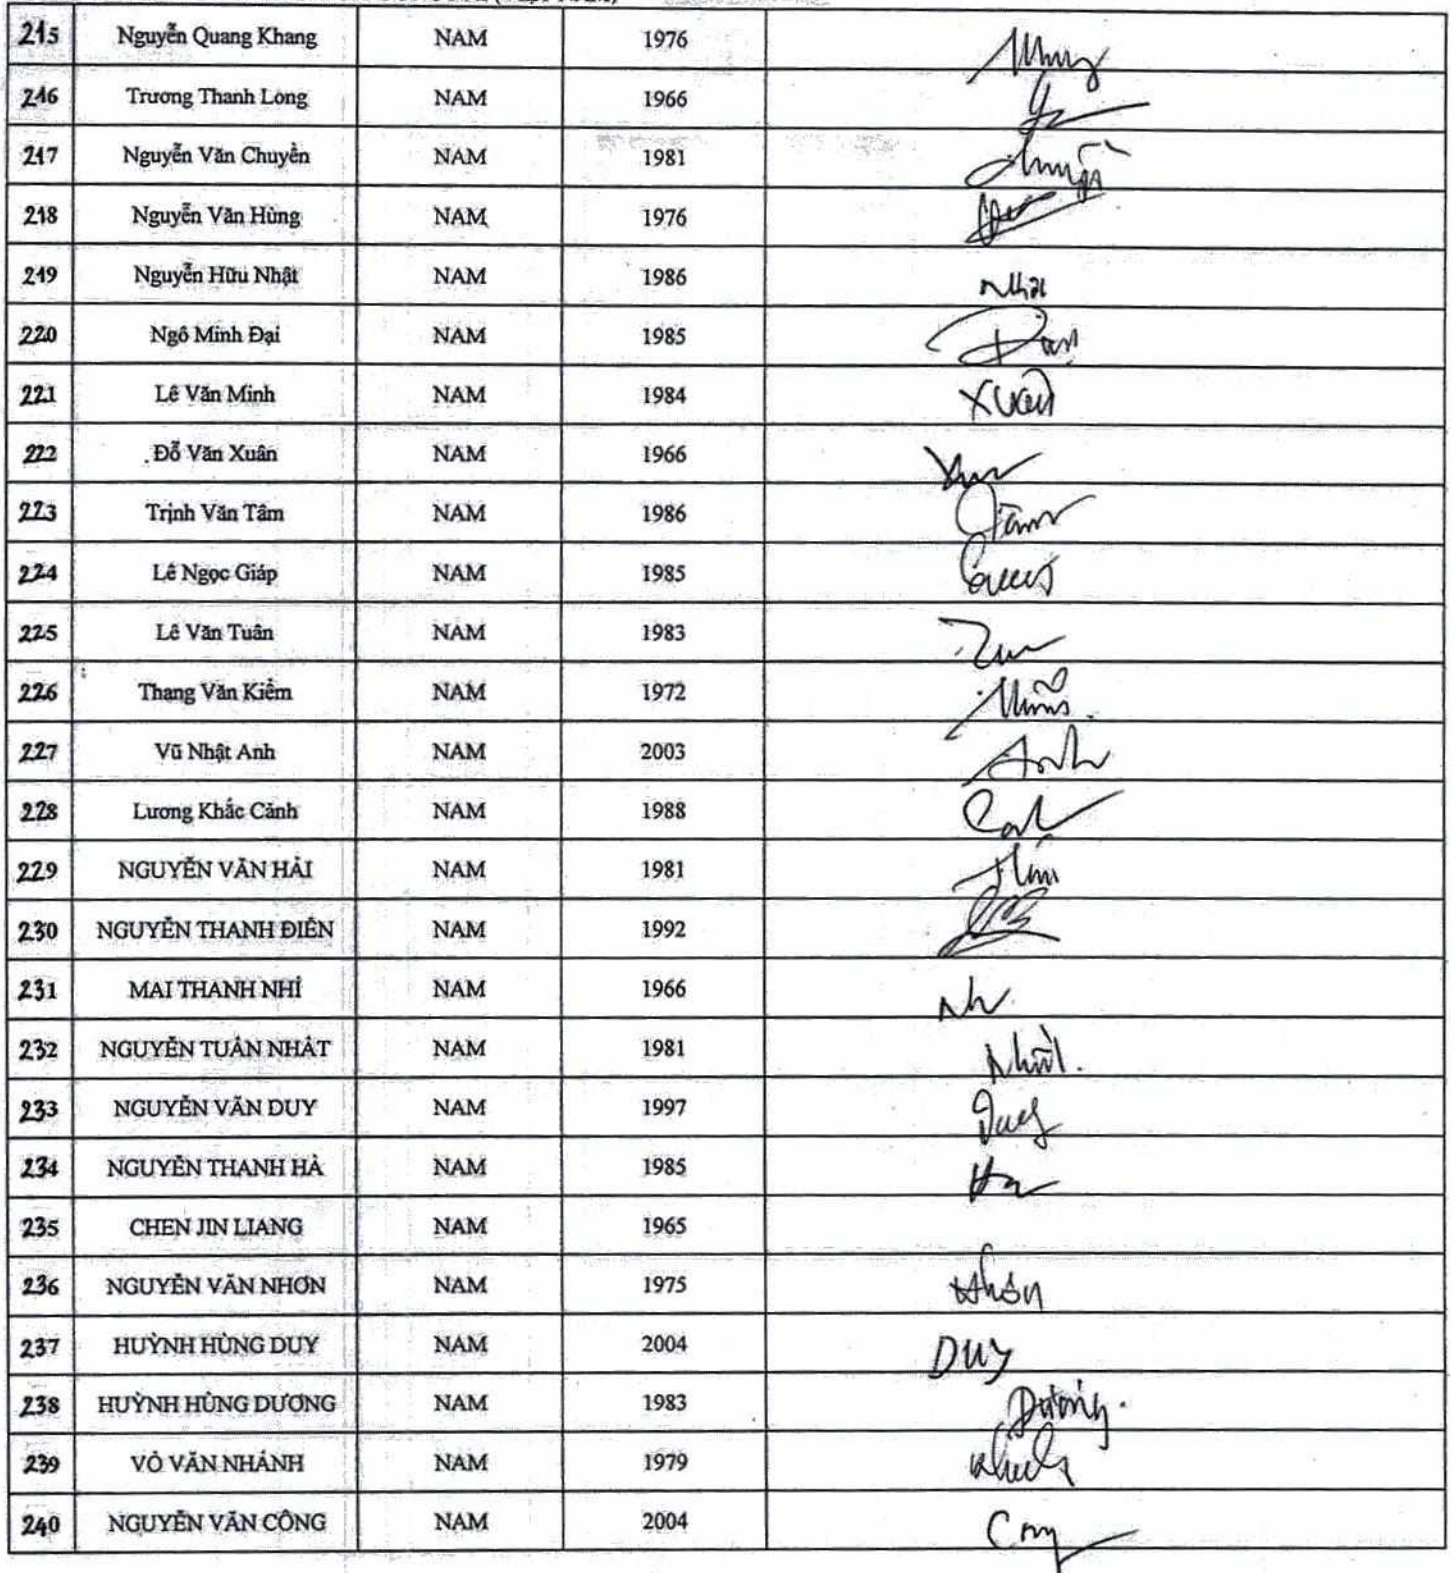 215 Nguyễn Quang Khang NAM 1976
216 Trương Thanh Long NAM 1966
217 Nguyễn Văn Chuyền NAM 1981
218 Nguyễn Văn Hùng NAM 1976
219 Nguyễn Hữu Nhật NAM 1986
220 Ngô Minh Đại NAM 1985
221 Lê Văn Minh NAM 1984 Xuân
222 Đỗ Văn Xuân NAM 1966
223 Trịnh Văn Tâm NAM 1986 Tâm
224 Lê Ngọc Giáp NAM 1985
225 Lê Văn Tuân NAM 1983
226 Thang Văn Kiểm NAM 1972
227 Vũ Nhật Anh NAM 2003 Anh
228 Lương Khắc Cảnh NAM 1988
229 NGUYỄN VĂN HẢI NAM 1981
230 NGUYỄN THANH ĐIỀN NAM 1992
231 MAI THANH NHÍ NAM 1966
232 NGUYỄN TUẤN NHÁT NAM 1981
233 NGUYỄN VĂN DUY NAM 1997 Duy
234 NGUYỄN THANH HÀ NAM 1985 Ha
235 CHEN JIN LIANG NAM 1965
236 NGUYỄN VĂN NHƠN NAM 1975 Nhơn
237 HUỲNH HÙNG DUY NAM 2004 DUY
238 HUỲNH HÙNG DƯƠNG NAM 1983 Dương.
239 VÕ VĂN NHÁNH NAM 1979
240 NGUYỄN VĂN CÔNG NAM 2004